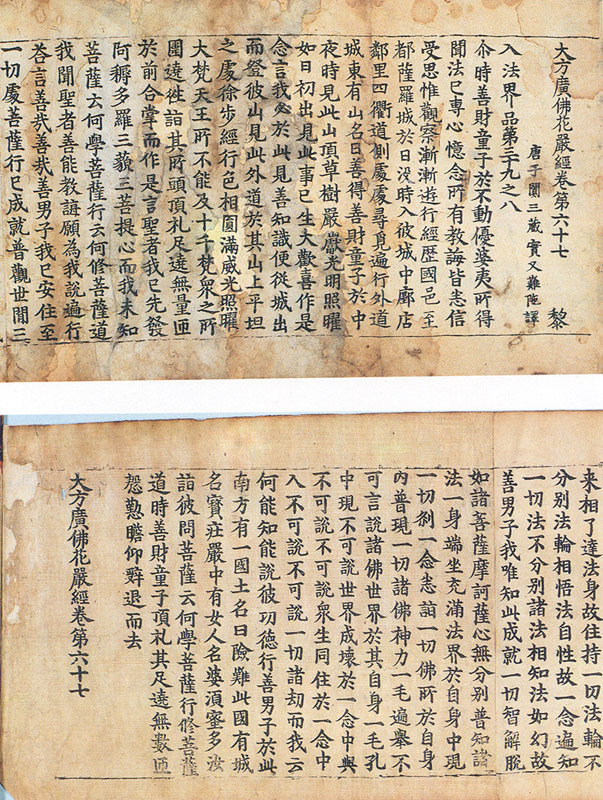 大方廣佛花嚴經卷第六十七 黎
唐于闐三藏實叉難陁譯
入法界品第三十九之八
尒時善財童子於不動優婆夷所得
聞法已專心憶念所有教誨皆忠信
受思惟觀察漸漸遊行經歷國邑至
都薩羅城於日没時入彼城中廊店
鄰里四衢道側處處尋覓遍行外道
城東有山名曰善得善財童子於中
夜時見此山頂草樹巖巘光明照曜
如日初出見此事已生大歡喜作是
念言我必於此見善知識便從城出
而登彼山見此外道於其山上平坦
之處徐步經行色相圓滿威光照曜
大梵天王所不能及十千梵衆之所
圍遶徃詣其所頭頂礼足遶無量匝
於前合掌而作是言聖者我已先發
阿耨多羅三藐三菩提心而我未知
菩薩云何學菩薩行云何修菩薩道
我聞聖者善能教誨願為我說遍行
荅言善㢤善㢤善男子我已安住至
一切處菩薩行已成就普觀世閒三
来相了達法身故住持一切法輪不
分别法輪相悟法自性故一念遍知
一切法不分别諸法相知法如幻故
善男子我唯知此成就一切智解脫
如諸菩薩摩訶薩心無分别普知諸
法一身端坐充滿法界於自身中現
一切剎一念悉詣一切佛所於自身
内普現一切諸佛神力一毛遍舉不
可言說諸佛世界於其自身一毛孔
中現不可說世界成壞於一念中與
不可說不可說衆生同住於一念中
入不可說不可說一切諸劫而我云
何能知能說彼功德行善男子於此
南方有一國土名曰險難此國有城
名寶荘嚴中有女人名婆湏蜜多汝
詣彼問菩薩云何學菩薩行修菩薩
道時善財童子頂礼其足遶無數匝
慇懃瞻仰辭退而去
大方廣佛花嚴經卷第六十七